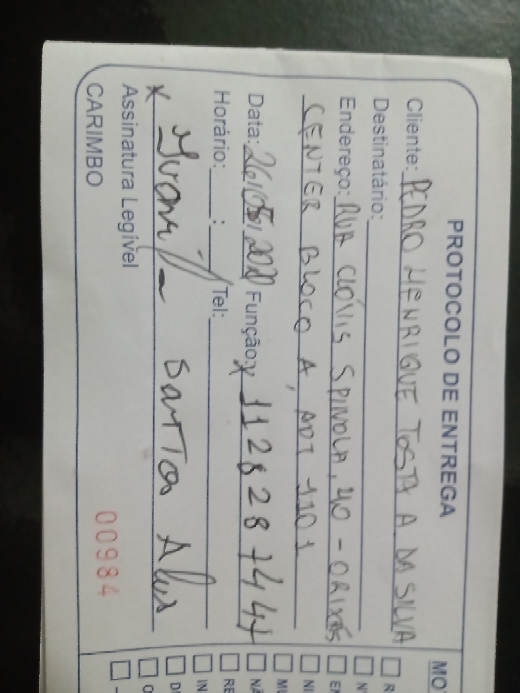 PROTOCOLO DE ENTREGA
Cliente: PEDRO HENRIQUE TOSTA A. DA SILVA
Destinatário:
Endereço: RUA CLÓVIS SPINOLA, 40 - ORIXÁS
CENTER BLOCO A, APT 1101
Data: 26/05/2020 Função: x 1126287447
Horário: : Tel:
x
Assinatura Legível
CARIMBO
00984
MO